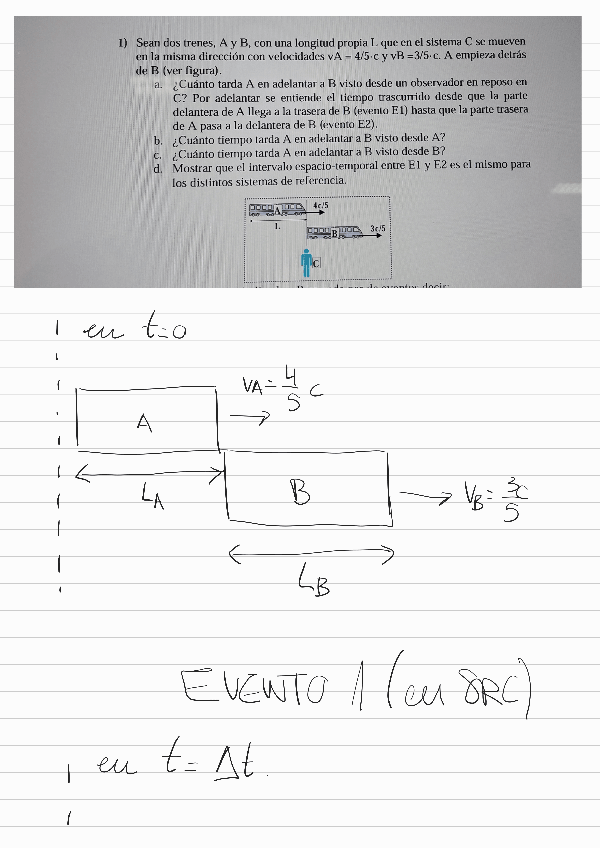 1) Sean dos trenes, A y B, con una longitud propia L que en el sistema C se mueven
en la misma dirección con velocidades vA = 4/5·c y vB =3/5·c. A empieza detrás
de B (ver figura).
a. ¿Cuánto tarda A en adelantar a B visto desde un observador en reposo en
C? Por adelantar se entiende el tiempo trascurrido desde que la parte
delantera de A llega a la trasera de B (evento E1) hasta que la parte trasera
de A pasa a la delantera de B (evento E2).
b. ¿Cuánto tiempo tarda A en adelantar a B visto desde A?
c. ¿Cuánto tiempo tarda A en adelantar a B visto desde B?
d. Mostrar que el intervalo espacio-temporal entre E1 y E2 es el mismo para
los distintos sistemas de referencia.
A 4c/5
L
B 3c/5
C
en t=0
A VA = 4/5 C
LA
B VB = 3c/5
LB
EVENTO 1 (en SRC)
en t = Δt.